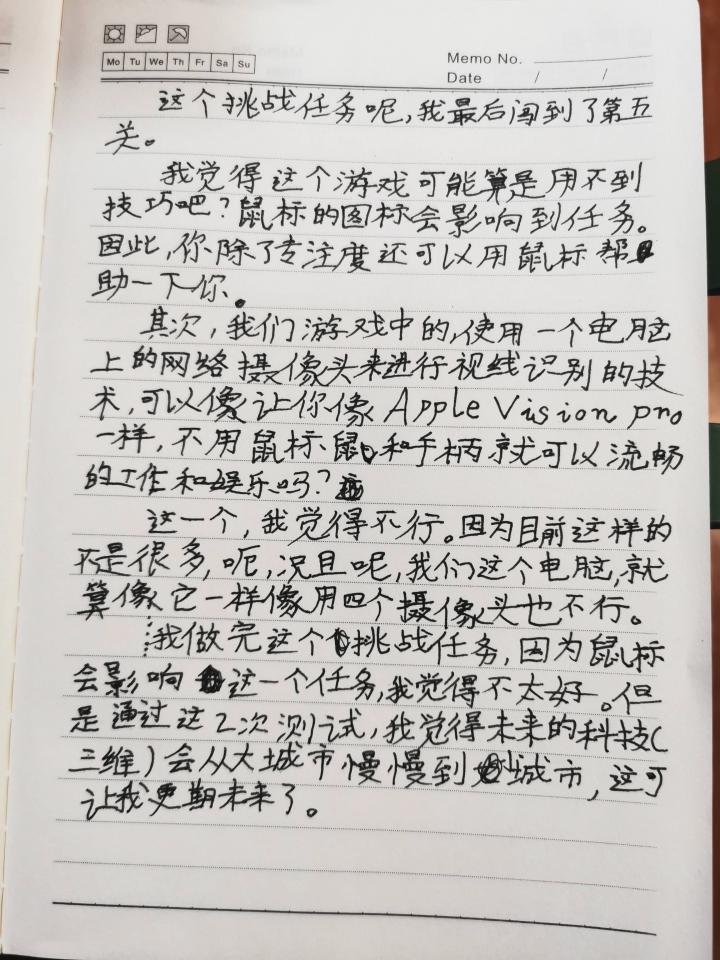 Mo Tu We Th Fr Sa Su
Memo No.
Date / /
这个挑战任务呢,我最后闯到了第五
关。
我觉得这个游戏可能算是用不到
技巧吧?鼠标的图标会影响到任务。
因此,你除了专注度还可以用鼠标帮
助一下你。
其次,我们游戏中的,使用一个电脑
上的网络摄像头来进行视线识别的技
术,可以像让你像Apple Vision pro
一样,不用鼠标鼠和手柄就可以流畅
的工作和娱乐吗?
这一个,我觉得不行。因为目前这样的
不是很多,呃,况且呢,我们这个电脑,就
算像它一样像用四个摄像头也不行。
我做完这个挑战任务,因为鼠标
会影响这一个任务,我觉得不太好。但
是通过这2次测试,我觉得未来的科技(
三维)会从大城市慢慢到城市,这可
让我更期未来了。